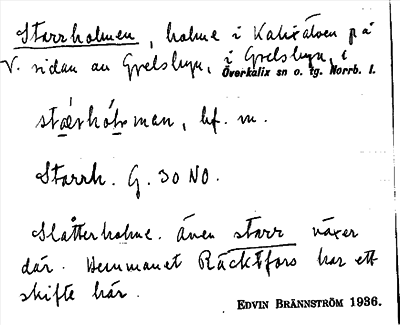 Starrholmen, holme i Kalixälven på
V. sidan av Grelsbyn, i Grelsbyn, i
Överkalix sn o. tg. Norrb. l.
stærhól man, bf. m.
Starrh. G. 30 NO.
Slåtterholme. Även starr växer
där. Hemmanet Räcktfors har ett
skifte här.
EDVIN BRÄNNSTRÖM 1936.